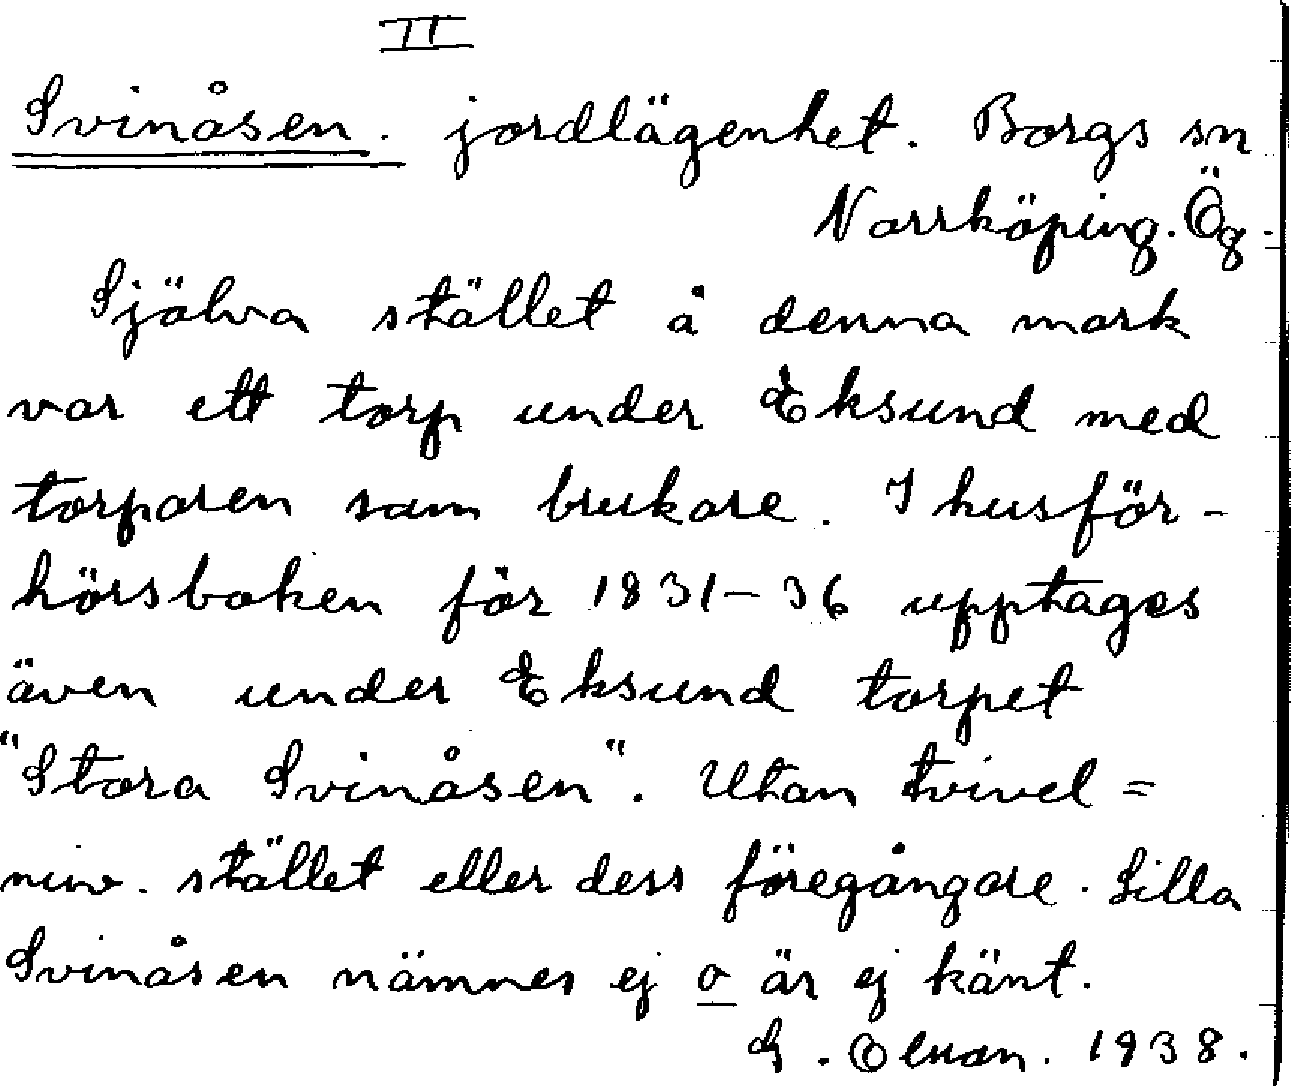 II
Svinåsen. jordlägenhet. Borgs sn
Norrköping. Ög.
Själva stället å denna mark
var ett torp under Eksund med
torparen som brukare. I husför-
hörsboken för 1831-36 upptages
även under Eksund torpet
"Stora Svinåsen". Utan tvivel =
nuv. stället eller dess föregångare. Lilla
Svinåsen nämnes ej o är ej känt.
G. 1938.